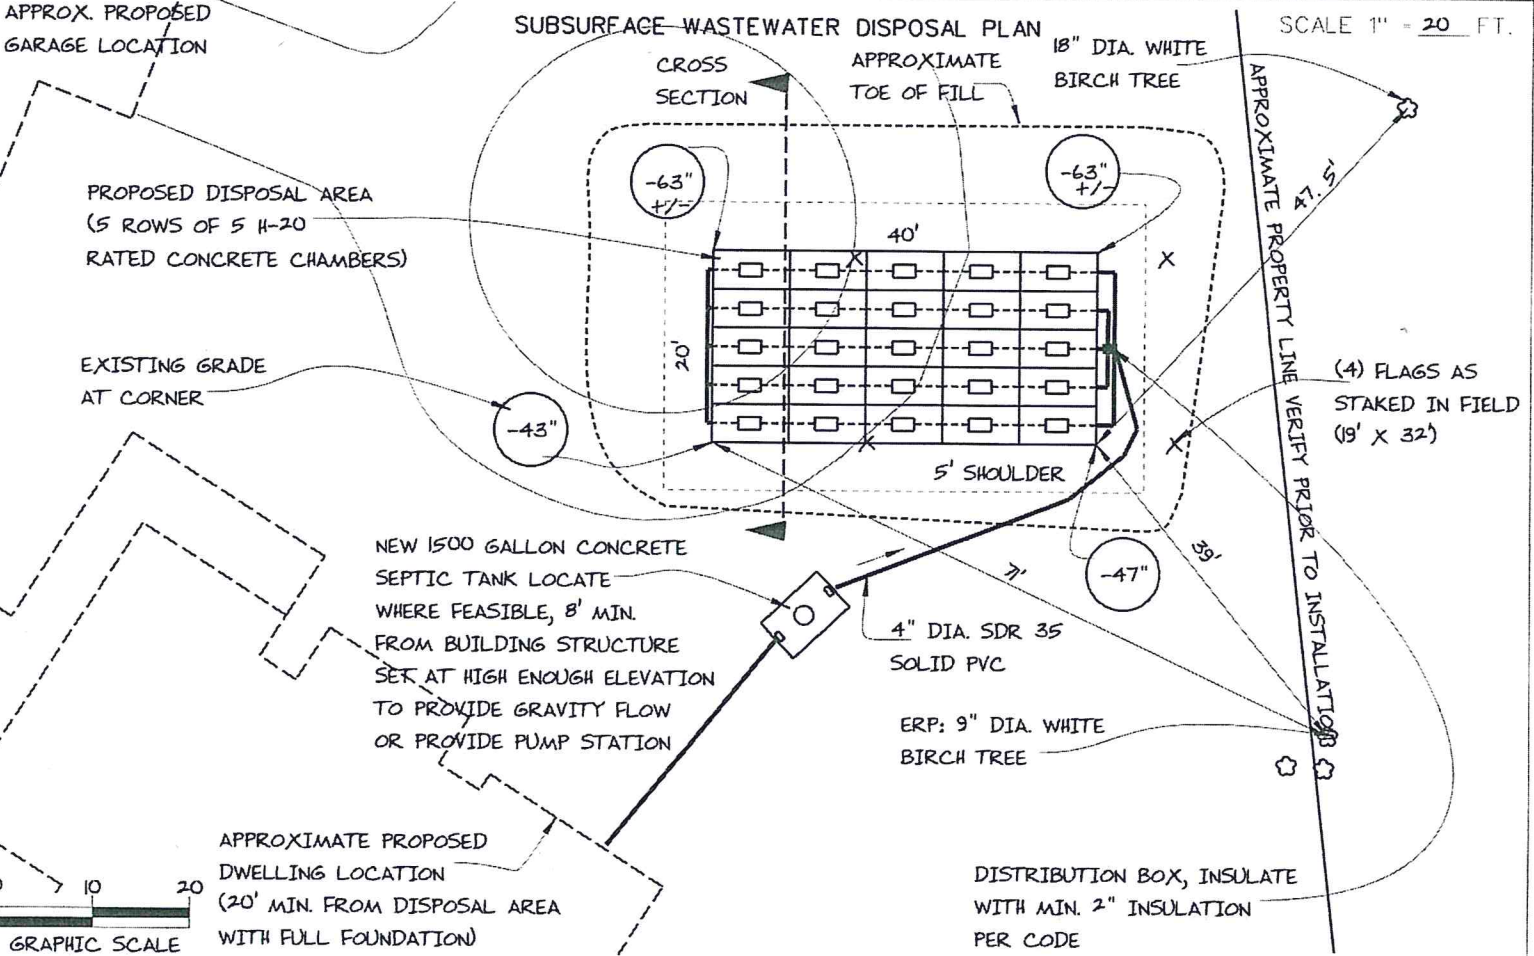 APPROX. PROPOSED
GARAGE LOCATION
SUBSURFACE WASTEWATER DISPOSAL PLAN
SCALE 1" = 20 FT.
CROSS
SECTION
APPROXIMATE
TOE OF FILL
18" DIA. WHITE
BIRCH TREE
-63"
+/-
-63"
+/-
PROPOSED DISPOSAL AREA
(5 ROWS OF 5 H-20
RATED CONCRETE CHAMBERS)
40'
20'
47.5'
APPROXIMATE PROPERTY LINE VERIFY PRIOR TO INSTALLATION
EXISTING GRADE
AT CORNER
-43"
(4) FLAGS AS
STAKED IN FIELD
(19' X 32')
5' SHOULDER
NEW 1500 GALLON CONCRETE
SEPTIC TANK LOCATE
WHERE FEASIBLE, 8' MIN.
FROM BUILDING STRUCTURE
SET AT HIGH ENOUGH ELEVATION
TO PROVIDE GRAVITY FLOW
OR PROVIDE PUMP STATION
71'
39'
-47"
4" DIA. SDR 35
SOLID PVC
ERP: 9" DIA. WHITE
BIRCH TREE
APPROXIMATE PROPOSED
DWELLING LOCATION
(20' MIN. FROM DISPOSAL AREA
WITH FULL FOUNDATION)
DISTRIBUTION BOX, INSULATE
WITH MIN. 2" INSULATION
PER CODE
0 10 20
GRAPHIC SCALE